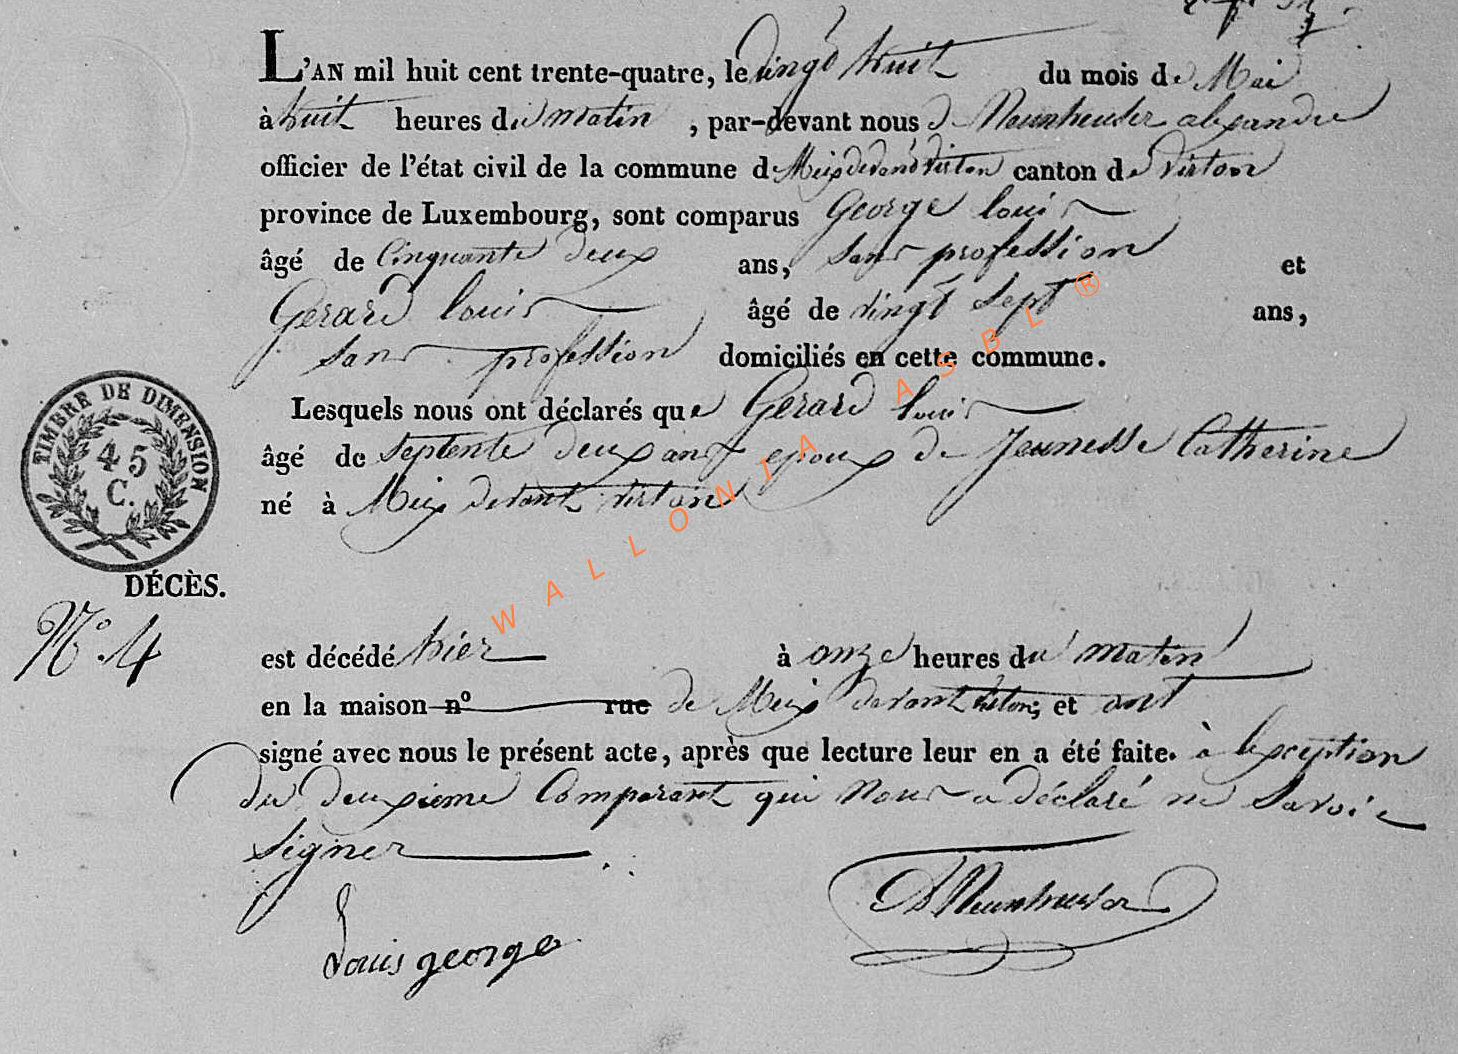 L'AN mil huit cent trente-quatre, le vingt huit du mois de Mai
à huit heures du matin, par-devant nous D Neunheuser alexandre
officier de l'état civil de la commune de Meix devant virton canton de virton
province de Luxembourg, sont comparus George louis
âgé de Cinquante deux ans, sans profession et
Gerard louis âgé de vingt sept ans,
sans profession domiciliés en cette commune.
Lesquels nous ont déclarés que Gerard louis
âgé de septente deux ans epoux de Jeunesse Catherine
né à Meix devant virton
TIMBRE DE DIMENSION
45
C.
DÉCÈS.
N° 4
est décédé hier à onze heures du matin
en la maison n° rue de Meix devant virton; et ont
signé avec nous le présent acte, après que lecture leur en a été faite. à lexception
du deuxieme Comparant qui nous a déclaré ne savoir
signer
Louis george
WALLONIA ASBL ®